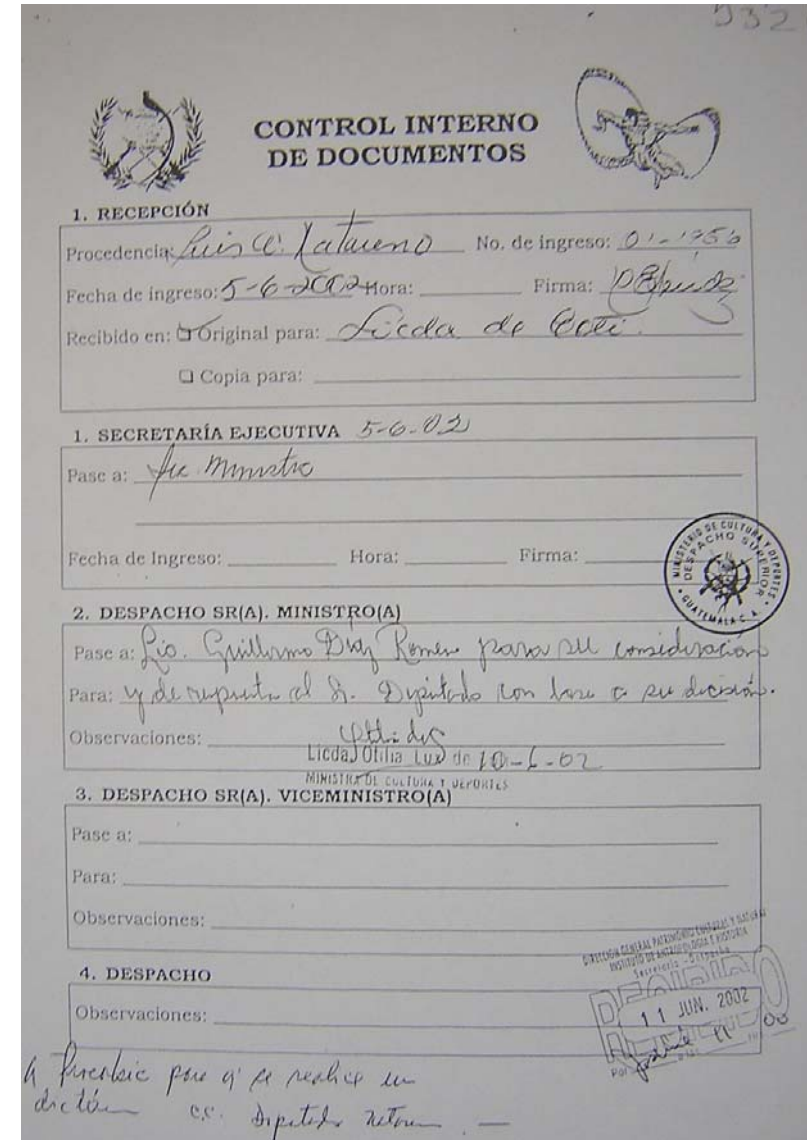 932
CONTROL INTERNO
DE DOCUMENTOS
1. RECEPCIÓN
Procedencia: Luis No. de ingreso: 01-1956
Fecha de ingreso: 5-6-2002 Hora: Firma:
Recibido en: Original para: Licda de Coti.
Copia para:
1. SECRETARÍA EJECUTIVA 5-6-02
Pase a: Ministro
Fecha de Ingreso: Hora: Firma:
MINISTERIO DE CULTURA Y DEPORTES
DESPACHO SUPERIOR
GUATEMALA C. A.
2. DESPACHO SR(A). MINISTRO(A)
Pase a: Lic. Guillermo Díaz Romeu para su consideración
Para: y de respuesta al Sr. Diputado con base a su decisión.
Observaciones:
Licda. Otilia Lux de 10-6-02
MINISTRA DE CULTURA Y DEPORTES
3. DESPACHO SR(A). VICEMINISTRO(A)
Pase a:
Para:
Observaciones:
DIRECCION GENERAL PATRIMONIO CULTURAL Y NATURAL
INSTITUTO DE ANTROPOLOGIA E HISTORIA
Secretaria - Despacho
4. DESPACHO
RECIBIDO
Observaciones:
11 JUN. 2002
Por
A para q' se realice un
c.c. Diputado